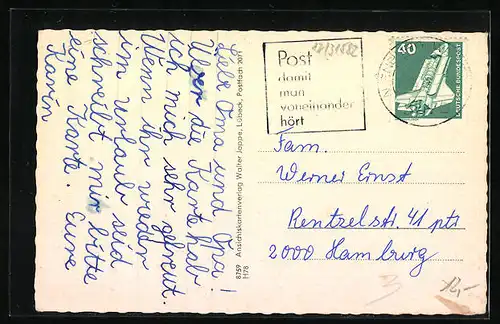 Liebe Oma und Opa!
Über die Karte hab
ich mich sehr gefreut.
Wenn ihr wieder
im Urlaub seid
schreibt mir bitte
eine Karte. Eure
Karin
8759
H78
Ansichtskartenverlag Walter Joppe, Lübeck, Postfach 2011
Post
damit
man
voneinander
hört
40
DEUTSCHE BUNDESPOST
Fam.
Werner Ernst
Rentzelstr. 41 ptr
2000 Hamburg
3
12,-